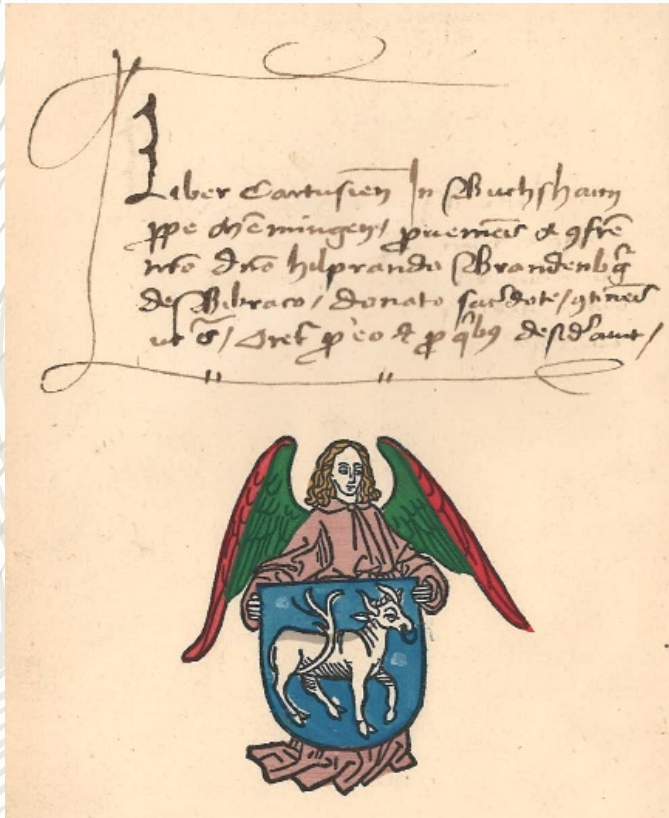 Liber Cartusien̄ In Buchshaim
ꝓpe Mēmingen / ꝓueniēs a ꝯfrē
nr̄o dn̄o hilprando Brandenbg̃
de Bibraco / donato sac̄dote / ꝯtinēs
ut s̄ / Oret̄ ꝓ eo & ꝓ qͥbꝯ desid̄auit /